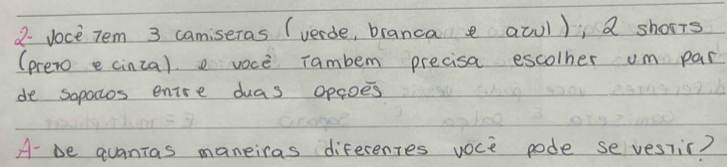 2- você tem 3 camiseras (verde, branca e azul); 2 shorts
(preto e cinza). e você tambem precisa escolher um par
de sapatos entre duas opções
A- De quantas maneiras diferentes você pode se vestir?